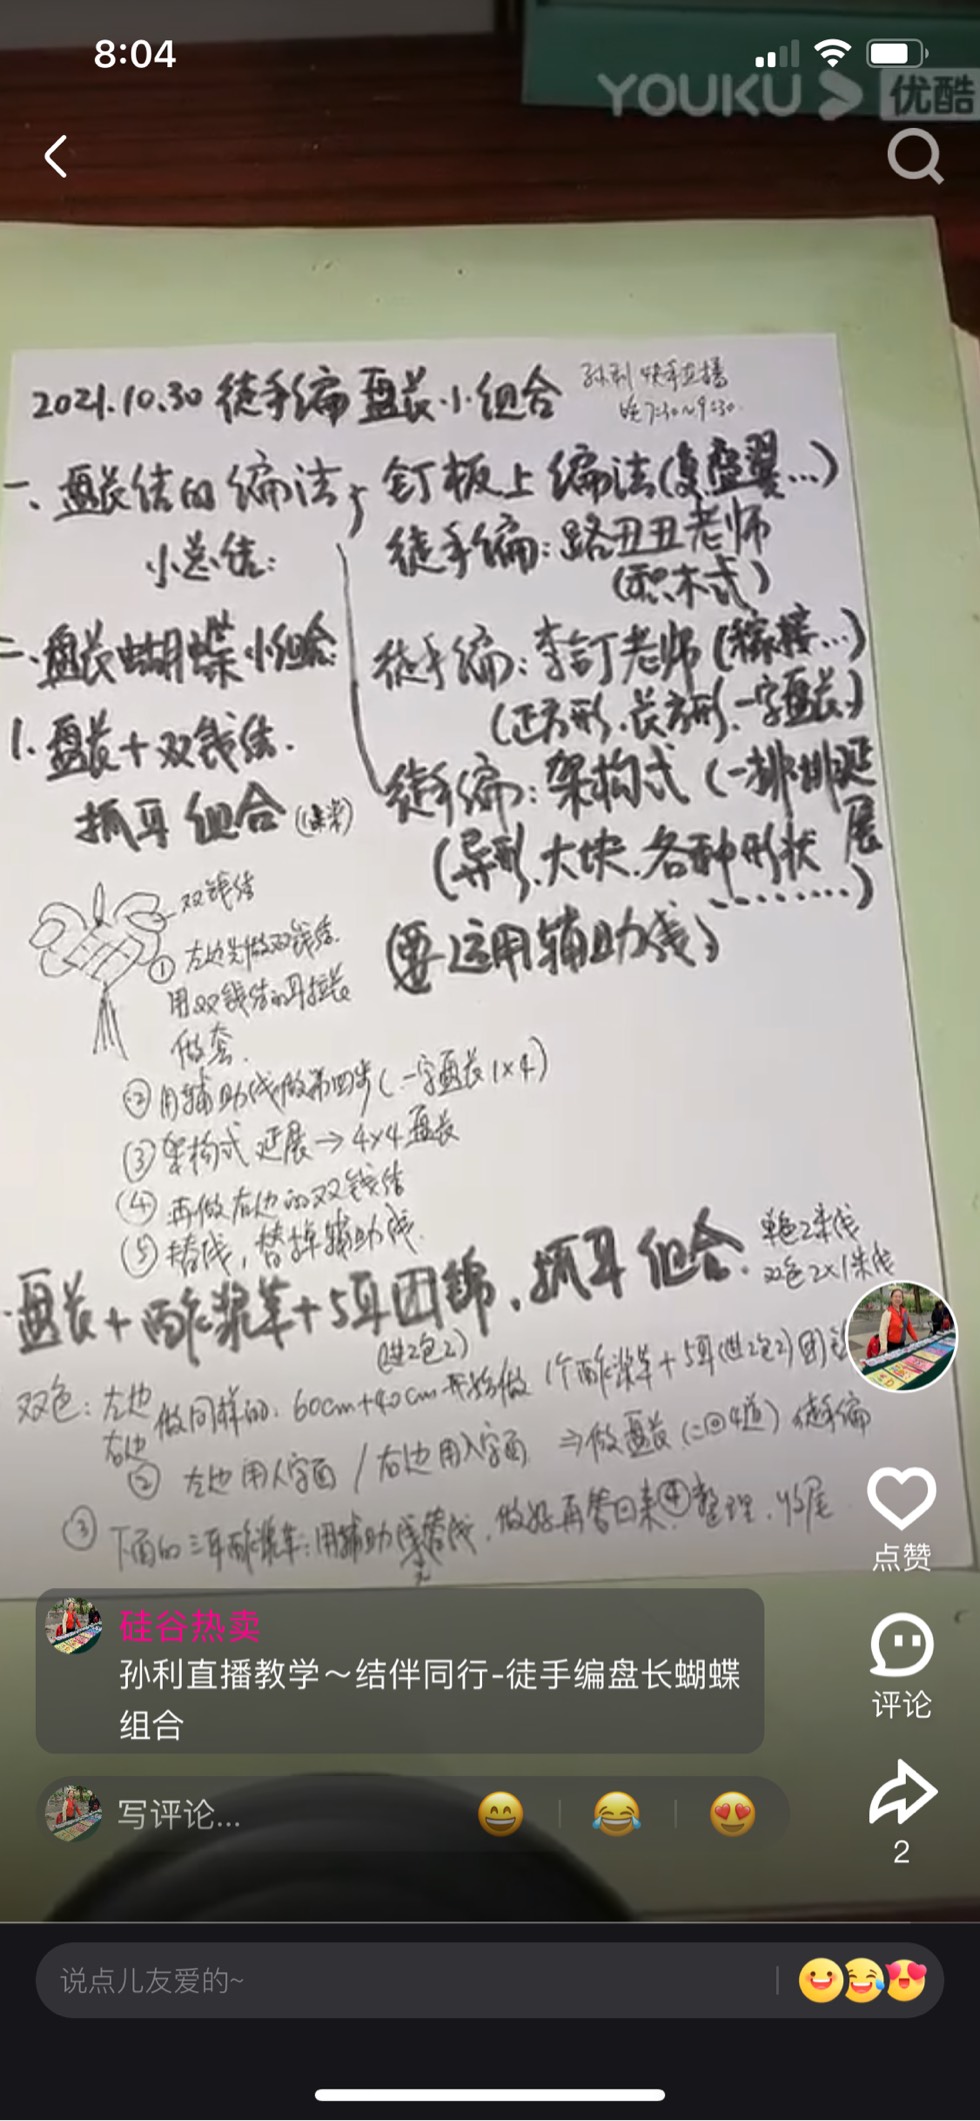 8:04
YOUKU 优酷
2021.10.30 徒手编 盘长小组合
孙利 快手直播
晚7:30~9:30
一、盘长结的编法,
小总结:
钉板上编法(复盘翼…)
徒手编:路丑丑老师
(积木式)
徒手编:李訂老师(稼接…)
(正方形.长方形.一字盘长)
徒手编:架构式(一排排延展
(异形.大块.各种形状………)
(要运用辅助线)
二、盘长蝴蝶小组合
1.盘长+双钱结.
抓耳组合
双钱结
①左边先做双钱结.
用双钱结的耳拉长
做套.
②用辅助线做第四步(一字盘长1×4)
③架构式延展→4×4盘长
④再做右边的双钱结
⑤替线,替掉辅助线.
盘长+酢浆草+5耳团锦.抓耳组合.
单色2米线
双色2×1米线
(进2包2)
双色:左边
右边
做同样的:60cm+40cm开始做 1个酢浆草+5耳(进2包2)团
② 左边用人字面/右边用入字面 ⇒做盘长(二回4道)徒手编
③ 下面的三耳酢浆草:用辅助线替线,做好再替回来④整理.收尾
点赞
硅谷热卖
孙利直播教学～结伴同行-徒手编盘长蝴蝶
组合
评论
写评论...
2
说点儿友爱的~